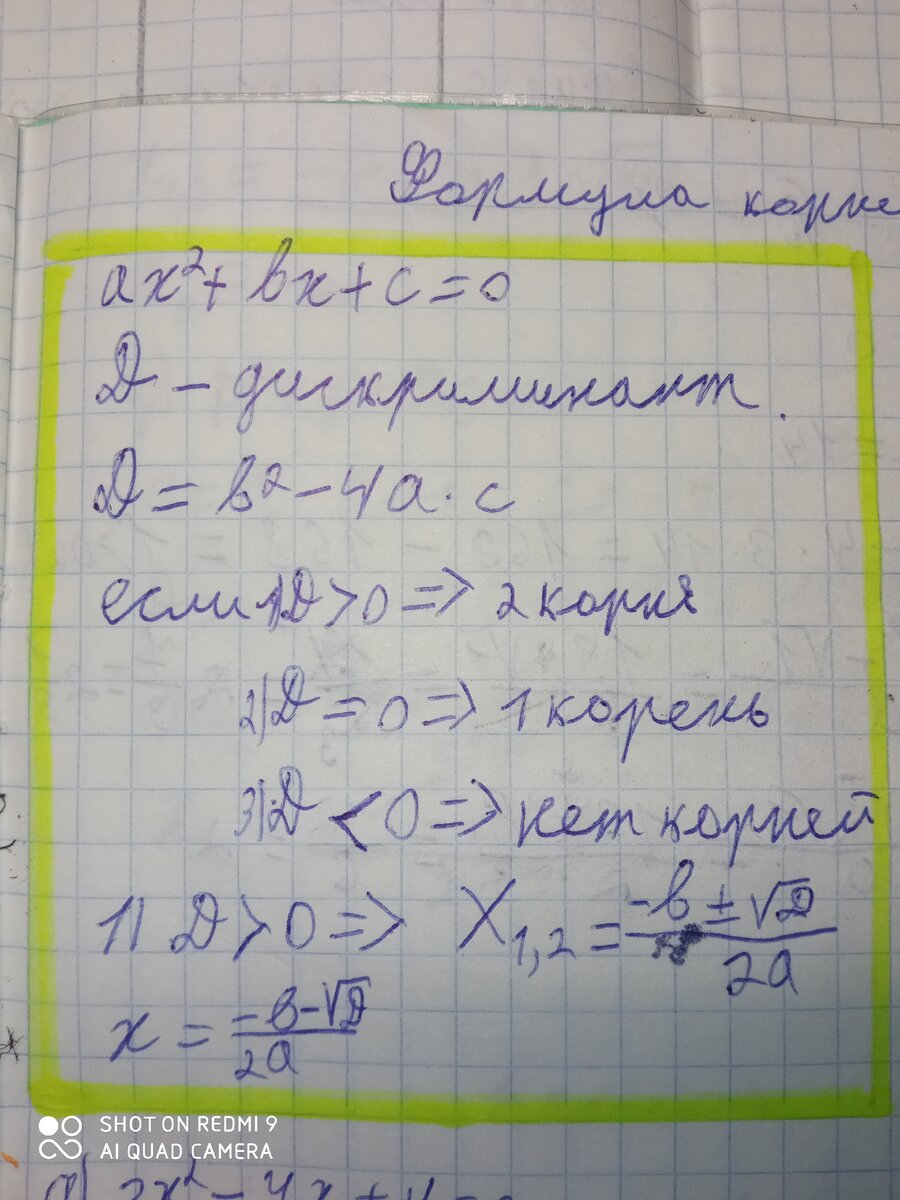 Формула корне
ax²+ bx+c=0
D – дискриминант.
D = b²–4a·c
если 1)D>0 => 2 корня
2)D = 0 => 1 корень
3)D < 0 => нет корней
1) D > 0 => X₁,₂ = -b ± √D / 2a
x = -b-√D / 2a
SHOT ON REDMI 9
AI QUAD CAMERA